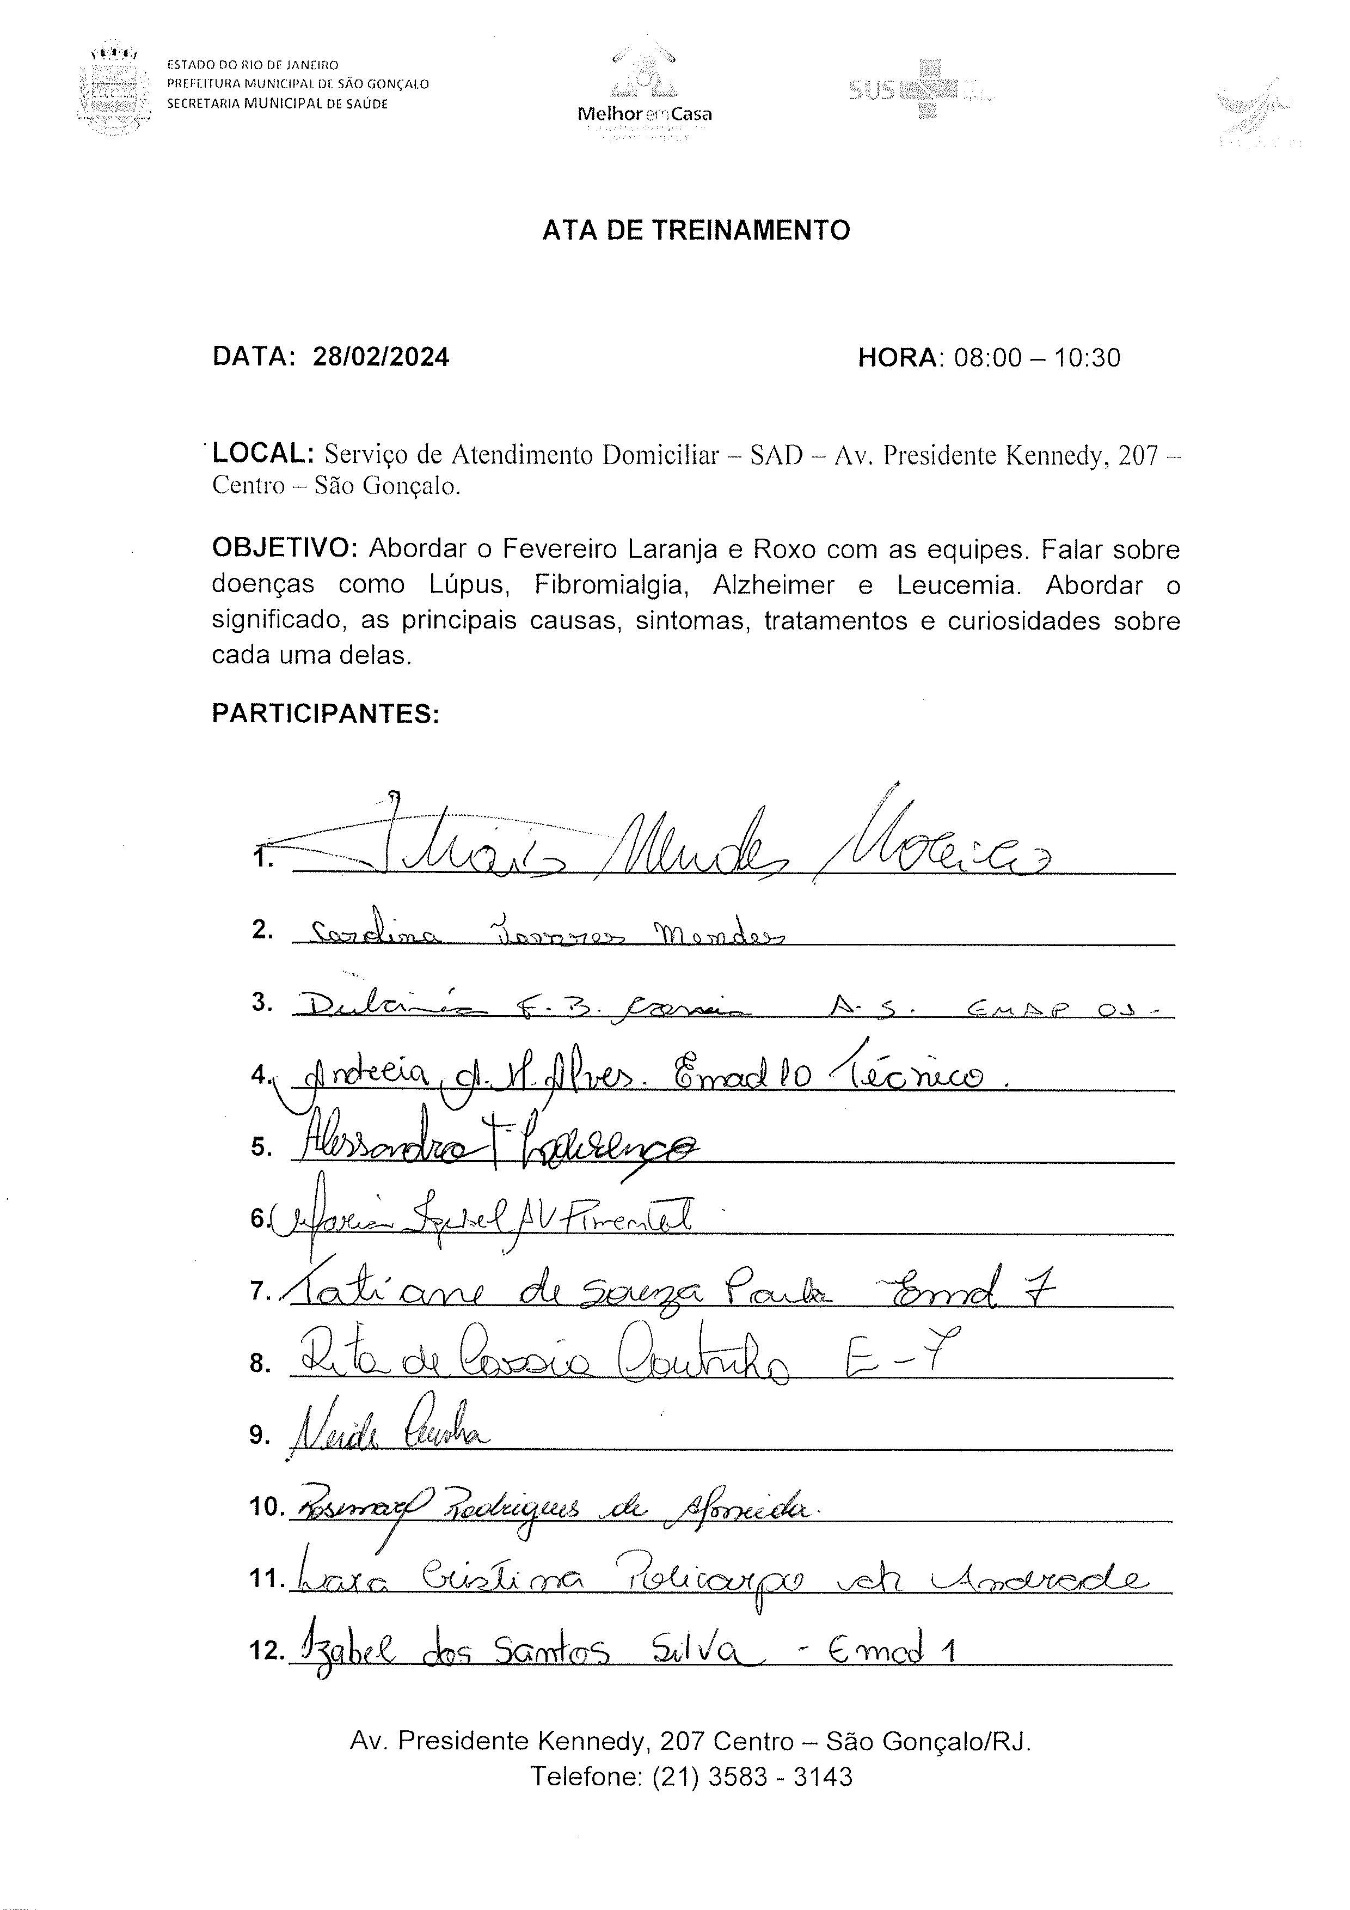 ESTADO DO RIO DE JANEIRO
PREFEITURA MUNICIPAL DE SÃO GONÇALO
SECRETARIA MUNICIPAL DE SAÚDE
Melhor em Casa
SUS
ATA DE TREINAMENTO
DATA: 28/02/2024 HORA: 08:00 – 10:30
LOCAL: Serviço de Atendimento Domiciliar – SAD – Av. Presidente Kennedy, 207 –
Centro – São Gonçalo.
OBJETIVO: Abordar o Fevereiro Laranja e Roxo com as equipes. Falar sobre
doenças como Lúpus, Fibromialgia, Alzheimer e Leucemia. Abordar o
significado, as principais causas, sintomas, tratamentos e curiosidades sobre
cada uma delas.
PARTICIPANTES:
1. Thais Mendes Moreira
2. Carolina Tavares Mendes
3. Dulcinéa F. B. Correia A. S. EMAP 03.
4. Andreia, A. M. Alves. Emad 10 Técnico.
5. Alessandra T Lourenço
6. Maria Izabel AV Pimentel
7. Tatiane de Souza Paula Emd 7
8. Rita de Cassia Coutinho E-7
9. Neide Cunha
10. Rosemary Rodrigues de Almeida.
11. Lara Cristina Policarpo de Andrade
12. Izabel dos Santos Silva - Emad 1
Av. Presidente Kennedy, 207 Centro – São Gonçalo/RJ.
Telefone: (21) 3583 - 3143